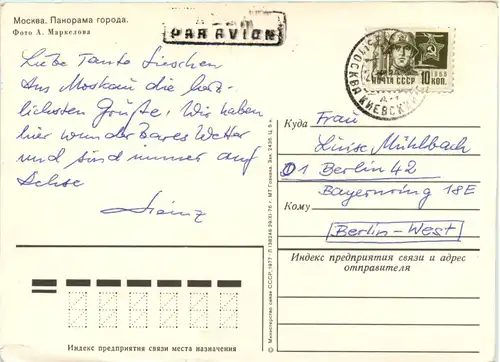 Москва. Панорама города.
Фото А. Маркелова
PAR AVION
Liebe Tante Lieschen
Aus Moskau die herz-
lichsten Grüße. Wir haben
hier wunderbares Wetter
und sind immer auf
Achse
Heinz
1966
ПОЧТА СССР 10 КОП.
МОСКВА КИЕВСКИЙ
Куда Frau
Luise Mühlbach
1 Berlin 42
Bayernring 18E
Кому
Berlin-West
Индекс предприятия связи и адрес
отправителя
Индекс предприятия связи места назначения
© Министерство связи СССР, 1977
МТ Гознака. Зак.